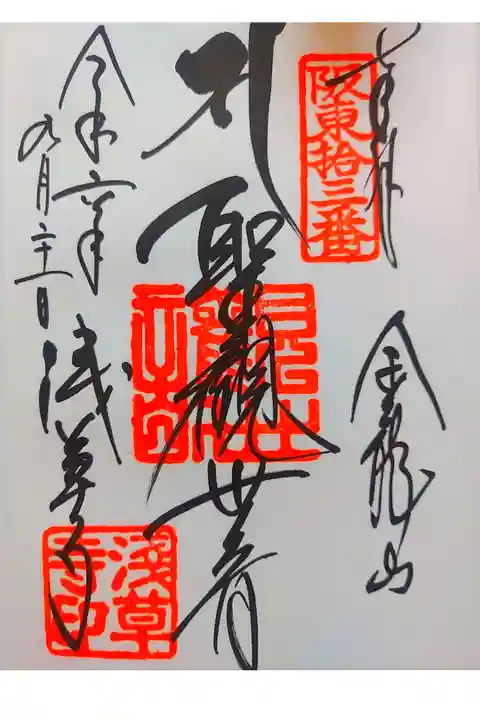 奉拝
阪東拾三番
金龍山
聖観世音
令和六年
九月二十一日
浅草寺
浅草
寺印